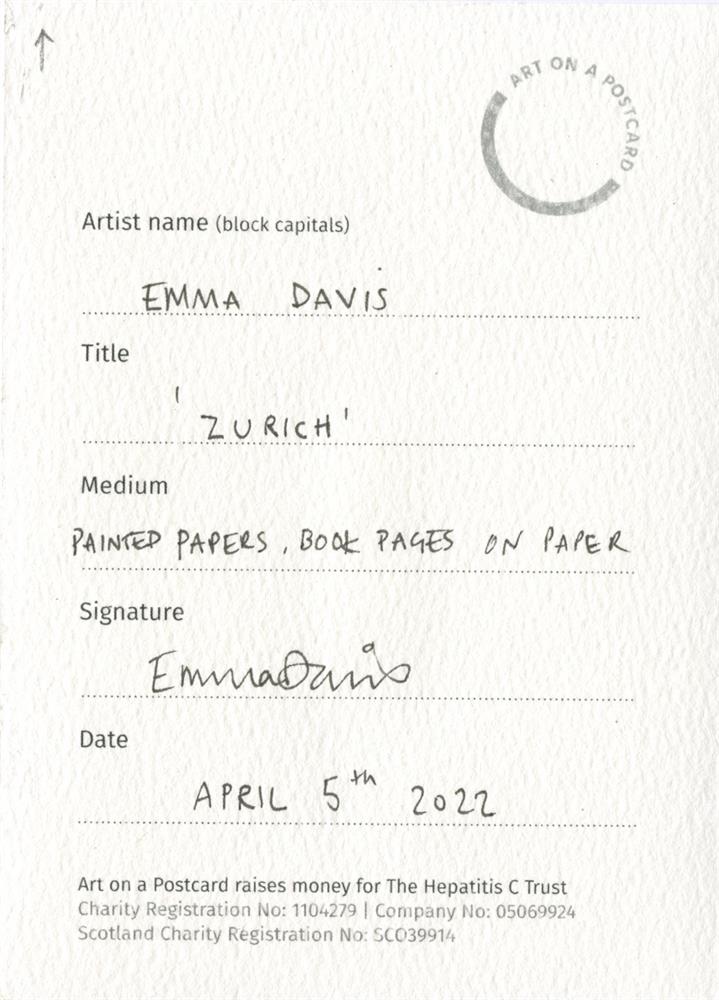 ART ON A POSTCARD
Artist name (block capitals)
EMMA DAVIS
Title
'ZURICH'
Medium
PAINTED PAPERS, BOOK PAGES ON PAPER
Signature
Emma Davis
Date
APRIL 5th 2022
Art on a Postcard raises money for The Hepatitis C Trust
Charity Registration No: 1104279 | Company No: 05069924
Scotland Charity Registration No: SCO39914